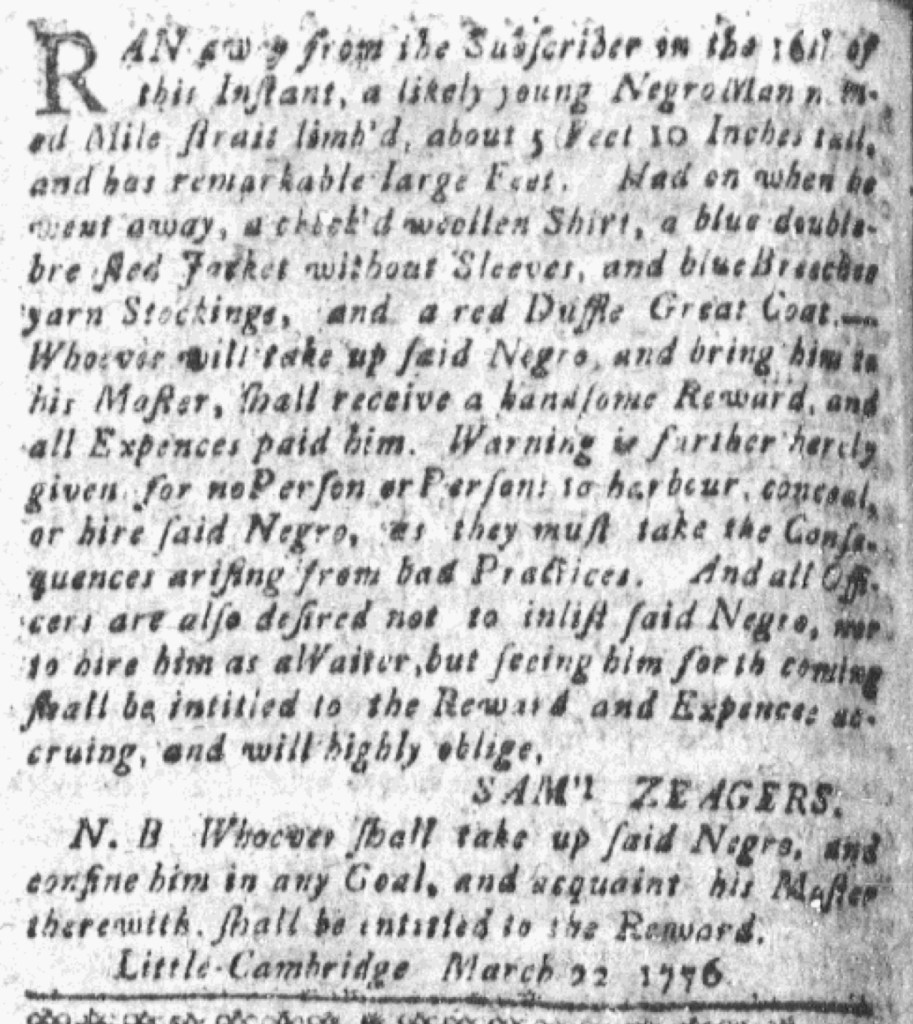 RAN away from the Subscriber on the 16th of
this Instant, a likely young Negro Man nam-
ed Mile strait limb'd, about 5 Feet 10 Inches tall,
and has remarkable large Feet. Had on when he
went away, a check'd woollen Shirt, a blue double-
breasted Jacket without Sleeves, and blue Breeches
yarn Stockings, and a red Duffle Great Coat.—
Whoever will take up said Negro, and bring him to
his Master, shall receive a handsome Reward, and
all Expences paid him. Warning is further herely
given for no Person or Persons to harbour, conceal,
or hire said Negro, as they must take the Conse-
quences arising from bad Practices. And all Offi-
cers are also desired not to inlist said Negro, nor
to hire him as a Waiter, but seeing him forth coming
shall be intitled to the Reward and Expences ac-
cruing, and will highly oblige,
SAM'l ZEAGERS.
N. B Whoever shall take up said Negro, and
confine him in any Goal, and acquaint his Master
therewith. shall be intitled to the Renward.
Little-Cambridge March 22 1776